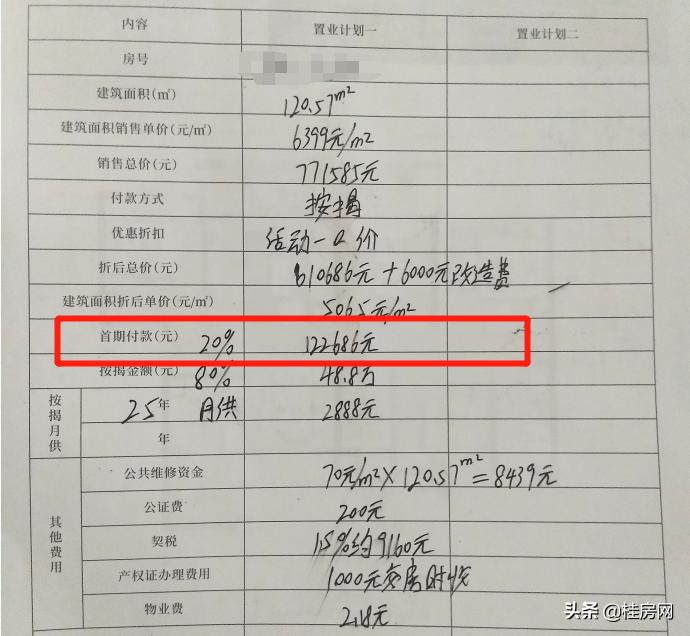 内容 置业计划一 置业计划二
房号
建筑面积(㎡) 120.57m²
建筑面积销售单价(元/㎡) 6399元/m²
销售总价(元) 771585元
付款方式 按揭
优惠折扣 活动一口价
折后总价(元) 610686元+6000元改造费
建筑面积折后单价(元/㎡) 5065元/m²
首期付款(元) 20% 122686元
按揭金额(元) 80% 48.8万
按揭月供 25年 月供 2888元
年
其他费用 公共维修资金 70元/m²×120.57m²=8439元
公证费 200元
契税 1.5%约9160元
产权证办理费用 1000元交房时收
物业费 2.18元
头条@桂房网